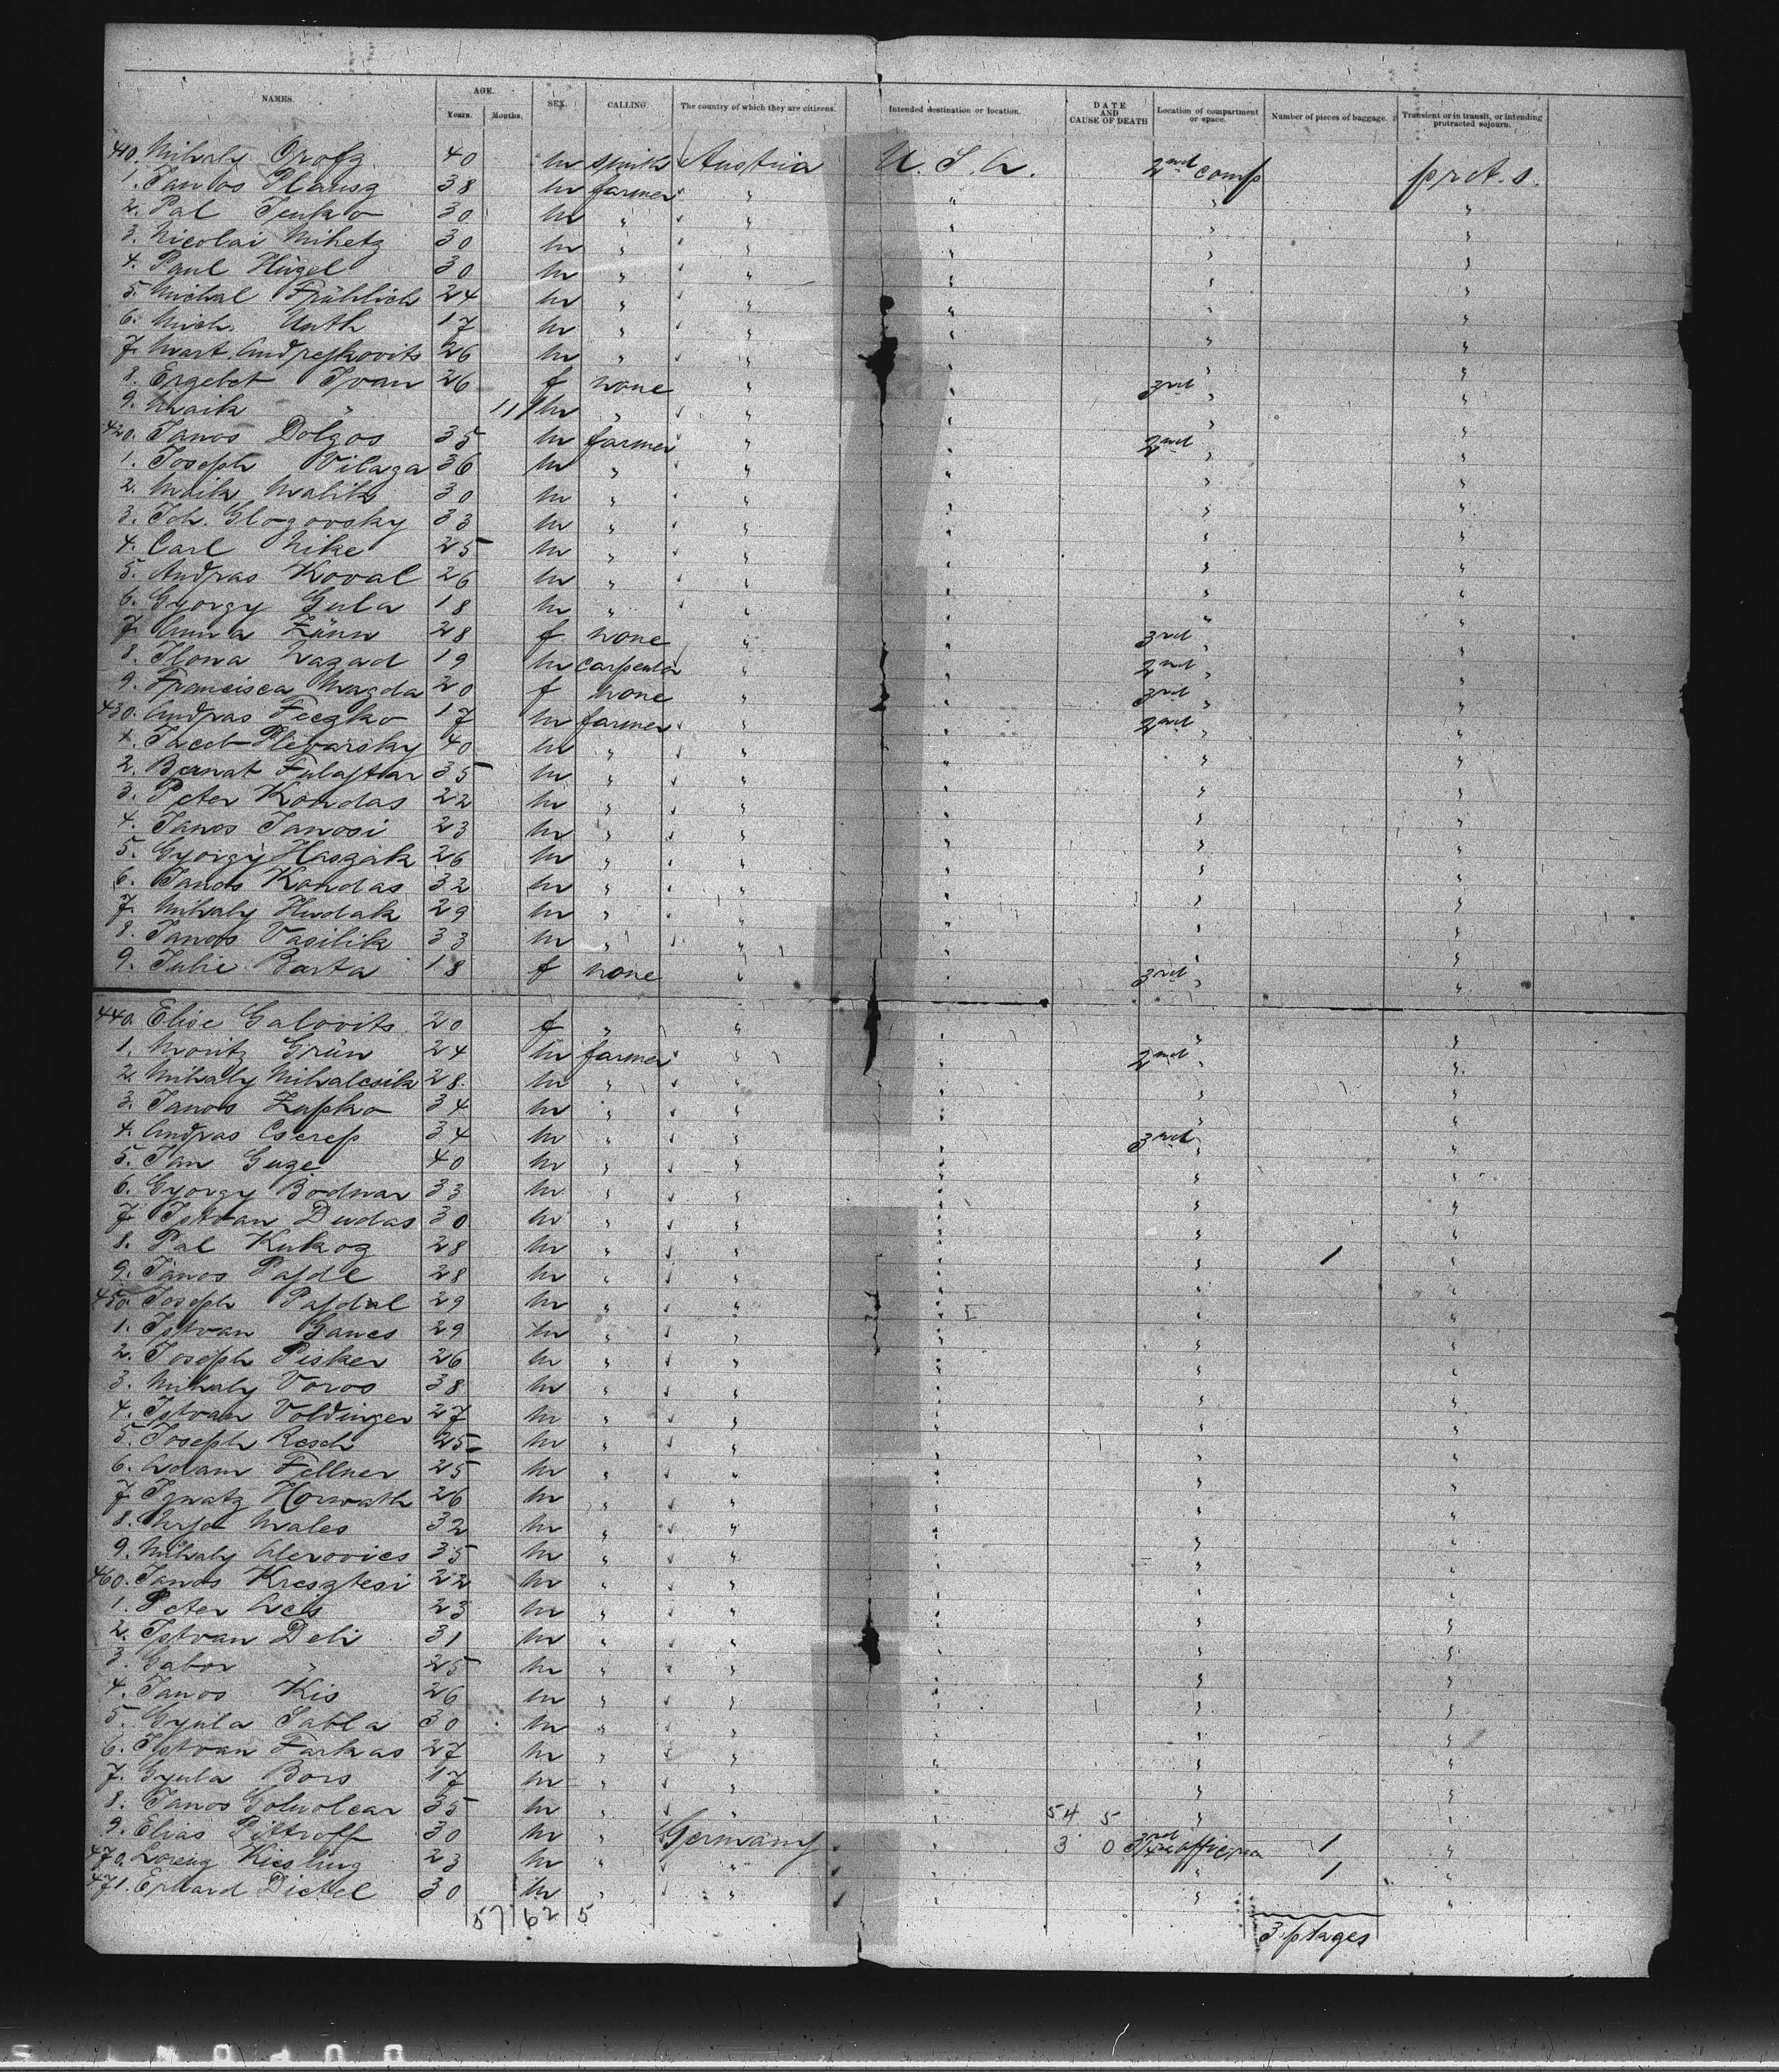 NAMES. AGE. Years. Months. SEX. CALLING The country of which they are citizens. Intended destination or location. DATE AND CAUSE OF DEATH Location of compartment or space. Number of pieces of baggage. Transient or in transit, or intending protracted sojourn.
410. Mihaly Orosz 40 m smith Austria U.S.A. 2nd comp
1. 38 m farmer " "
2. Pal Tenko 30 m " " "
3. Nicolai Mihetz 30 m " " "
4. Paul Hügel 30 m " " "
5. Michal Frühlich 24 m " " "
6. Mich. Unth 17 m " " "
7. Mart. Andrejkovits 26 m " " "
8. Erzebet Ivan 26 f none " " 3rd "
9. Maik " 11 m " " "
420. Janos Dolgos 35 m farmer " " 2nd "
1. Joseph Vilaga 36 m " " "
2. Maik Malik 30 m " " "
3. Joh. Glogovsky 33 m " " "
4. Carl Mike 25 m " " "
5. Andras Koval 26 m " " "
6. Gyorgy Gula 18 m " " "
7. Anna Zünn 28 f none " " 3rd "
8. Ilona Lazad 19 m carpenter " " 2nd "
9. Francisca Magda 20 f none " " 3rd "
430. Andras Feczko 17 m farmer " " 2nd "
1. Jacob Plevarsky 40 m " " "
2. Bernat Fulajtar 35 m " " "
3. Peter Kondas 22 m " " "
4. Janos Janosi 23 m " " "
5. Gyorgy Haszak 26 m " " "
6. Janos Kondas 32 m " " "
7. Mihaly Hudak 29 m " " "
8. Janos Vasilik 33 m " " "
9. Julie Barta 18 f none " " 3rd "
440. Elise Galovits 20 f " " "
1. Moritz Grün 24 m farmer " " 2nd "
2. Mihaly Mihalcsik 28 m " " "
3. Janos Zupko 34 m " " "
4. Andras Cserep 34 m " " " 3rd "
5. Jan Guze 40 m " " "
6. Gyorgy Bodnar 33 m " " "
7. Istvan Dudas 30 m " " "
8. Pal Kukoz 28 m " " " 1
9. Janos Pajdl 28 m " " "
450. Joseph Pajdal 29 m " " "
1. Istvan Gancs 29 m " " "
2. Joseph Pisker 26 m " " "
3. Mihaly Voros 38 m " " "
4. Istvan Voldinger 27 m " " "
5. Joseph Resch 25 m " " "
6. Adam Fellner 25 m " " "
7. Ignatz Horwath 26 m " " "
8. Males 32 m " " "
9. Mihaly Alerovics 35 m " " "
460. Janos Kresztesi 22 m " " "
1. Peter Acs 23 m " " "
2. Istvan Deli 31 m " " "
3. Gabor " 25 m " " "
4. Janos Kis 26 m " " "
5. Gyula Sabla 30 m " " "
6. Istvan Farkas 27 m " " "
7. Gyula Bors 17 m " " "
8. Janos 35 m " " " 54 5 "
9. Elias Pittroff 30 m " Germany " 3 0 3rd 1 "
470. Kiesling 23 m " " " 1 "
471. Erhard Dietel 30 m " " "
57 62 5
3 pkages